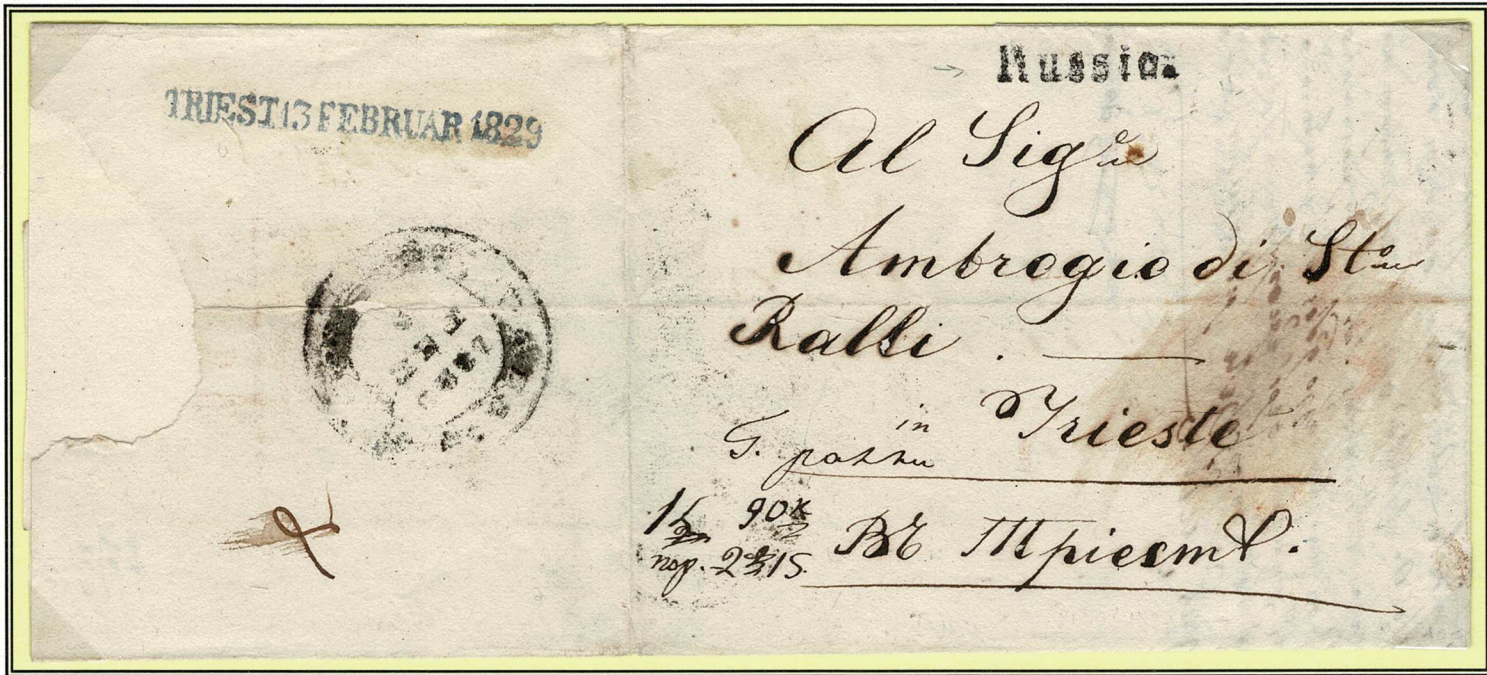 TRIEST 13 FEBRUAR 1829
Russia.
Al Sig.re
Ambrogio di St.
Ralli .
in Trieste
90 к
пор. 2 15
Въ Тріестѣ.